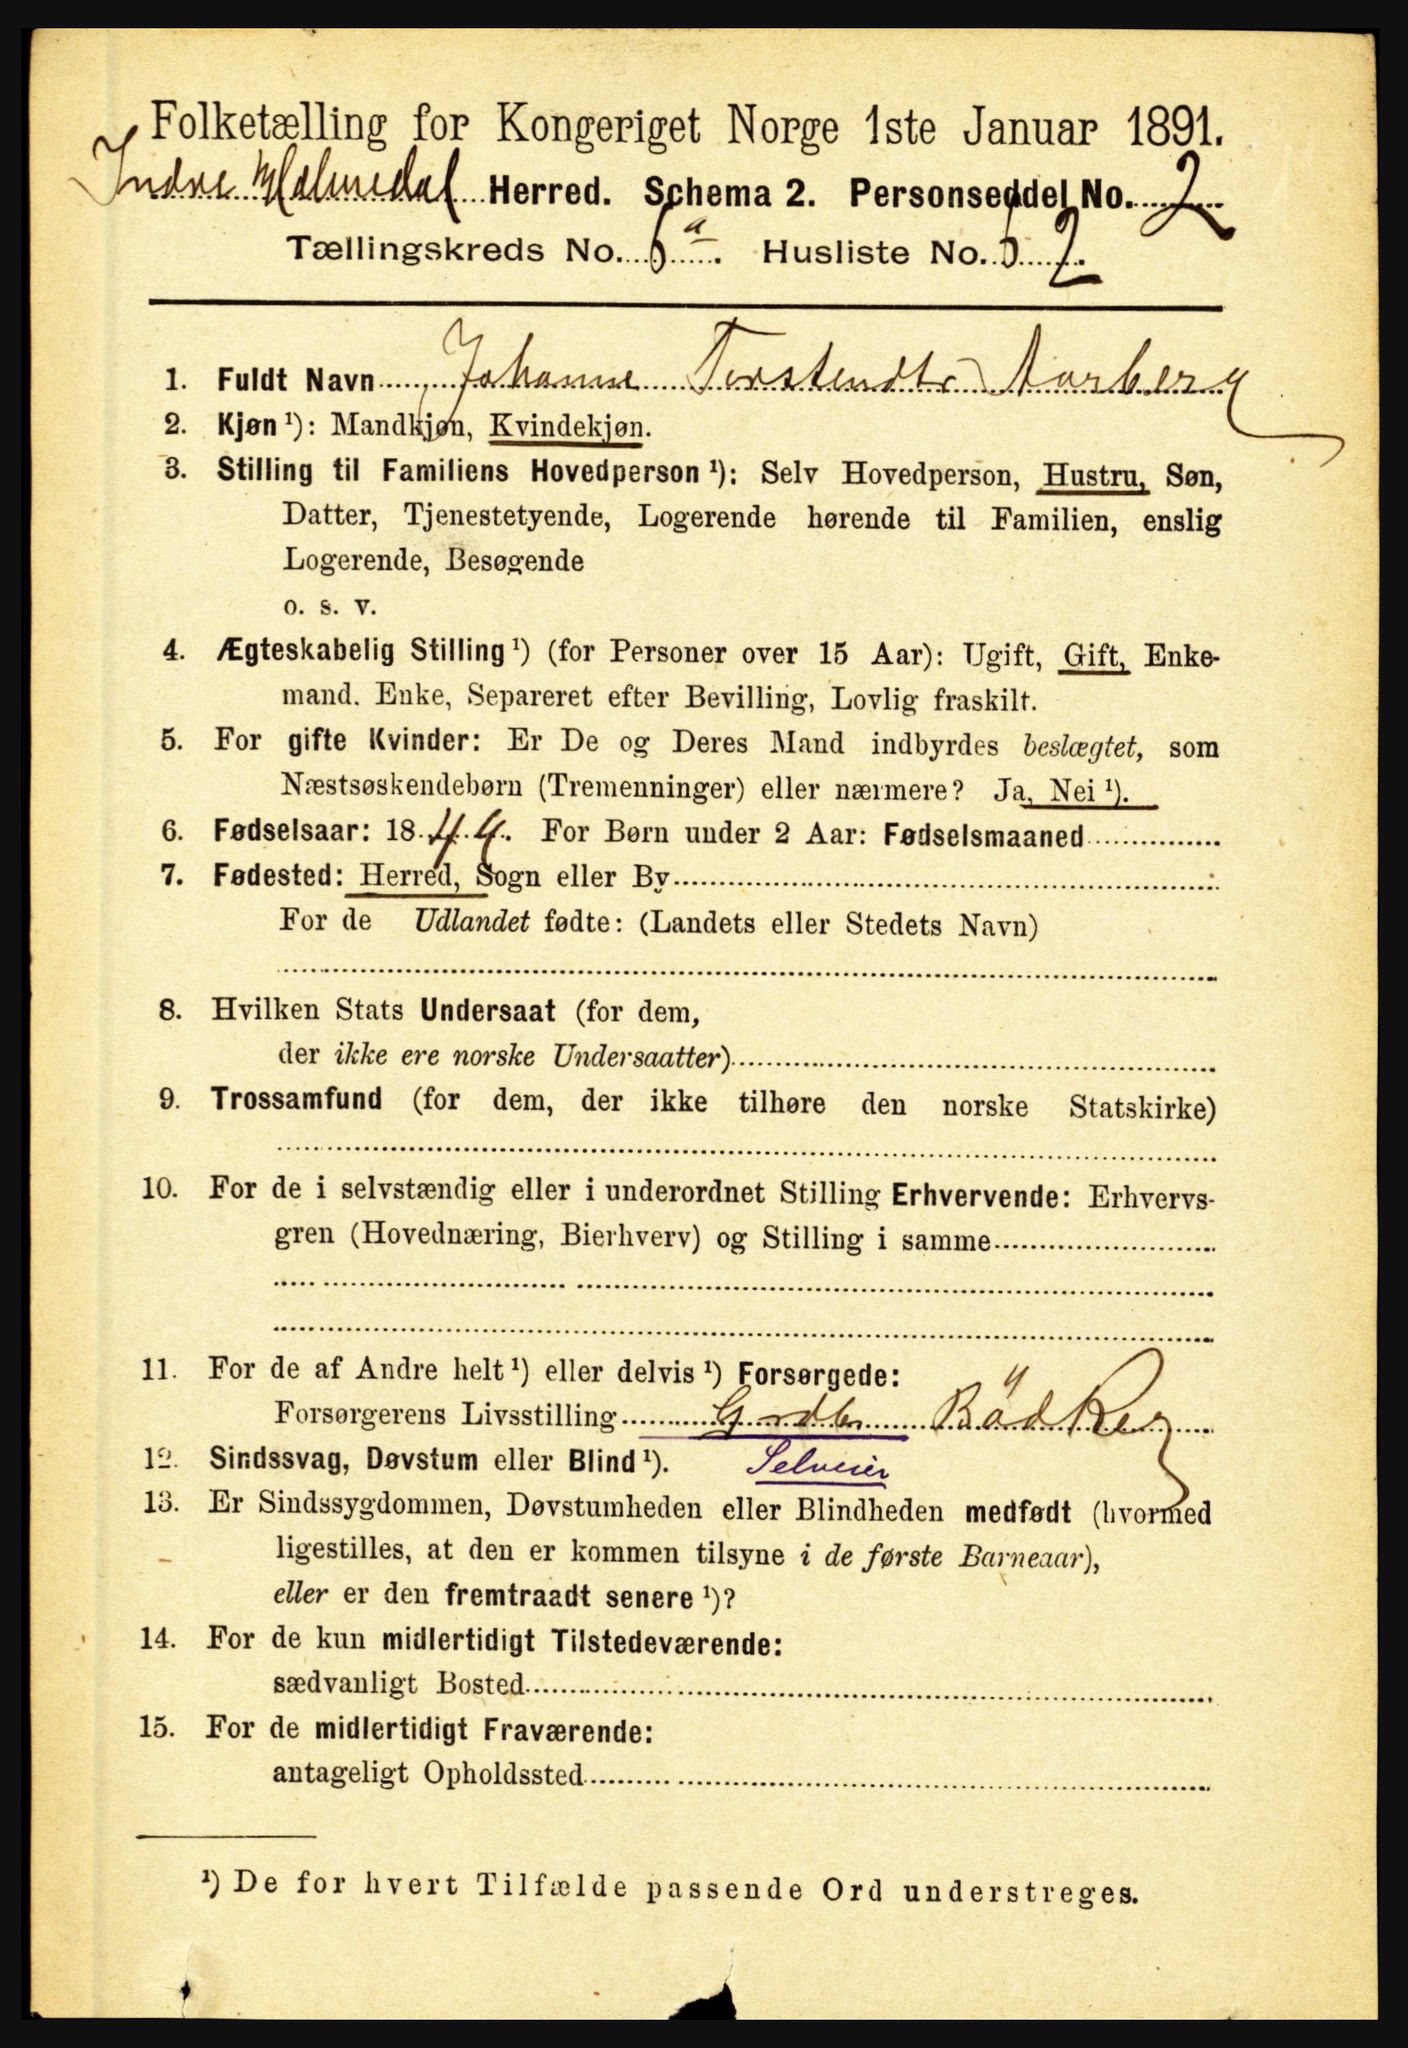 Folketælling for Kongeriget Norge 1ste Januar 1891.
Indre Holmedal Herred. Schema 2. Personseddel No. 2
Tællingskreds No. 6 a. Husliste No. 62
1. Fuldt Navn Johanne Torstendtr Aarberg
2. Kjøn ¹): Mandkjøn, Kvindekjøn.
3. Stilling til Familiens Hovedperson ¹): Selv Hovedperson, Hustru, Søn,
Datter, Tjenestetyende, Logerende hørende til Familien, enslig
Logerende, Besøgende
o. s. v.
4. Ægteskabelig Stilling ¹) (for Personer over 15 Aar): Ugift, Gift, Enke-
mand. Enke, Separeret efter Bevilling, Lovlig fraskilt.
5. For gifte Kvinder: Er De og Deres Mand indbyrdes beslægtet, som
Næstsøskendebørn (Tremenninger) eller nærmere? Ja, Nei ¹).
6. Fødselsaar: 1844. For Børn under 2 Aar: Fødselsmaaned
7. Fødested: Herred, Sogn eller By
For de Udlandet fødte: (Landets eller Stedets Navn)
8. Hvilken Stats Undersaat (for dem,
der ikke ere norske Undersaatter)
9. Trossamfund (for dem, der ikke tilhøre den norske Statskirke)
10. For de i selvstændig eller i underordnet Stilling Erhvervende: Erhvervs-
gren (Hovednæring, Bierhverv) og Stilling i samme
11. For de af Andre helt ¹) eller delvis ¹) Forsørgede:
Forsørgerens Livsstilling Grdbr Bødker
12. Sindssvag, Døvstum eller Blind ¹). Selveier
13. Er Sindssygdommen, Døvstumheden eller Blindheden medfødt (hvormed
ligestilles, at den er kommen tilsyne i de første Barneaar),
eller er den fremtraadt senere ¹)?
14. For de kun midlertidigt Tilstedeværende:
sædvanligt Bosted
15. For de midlertidigt Fraværende:
antageligt Opholdssted
¹) De for hvert Tilfælde passende Ord understreges.